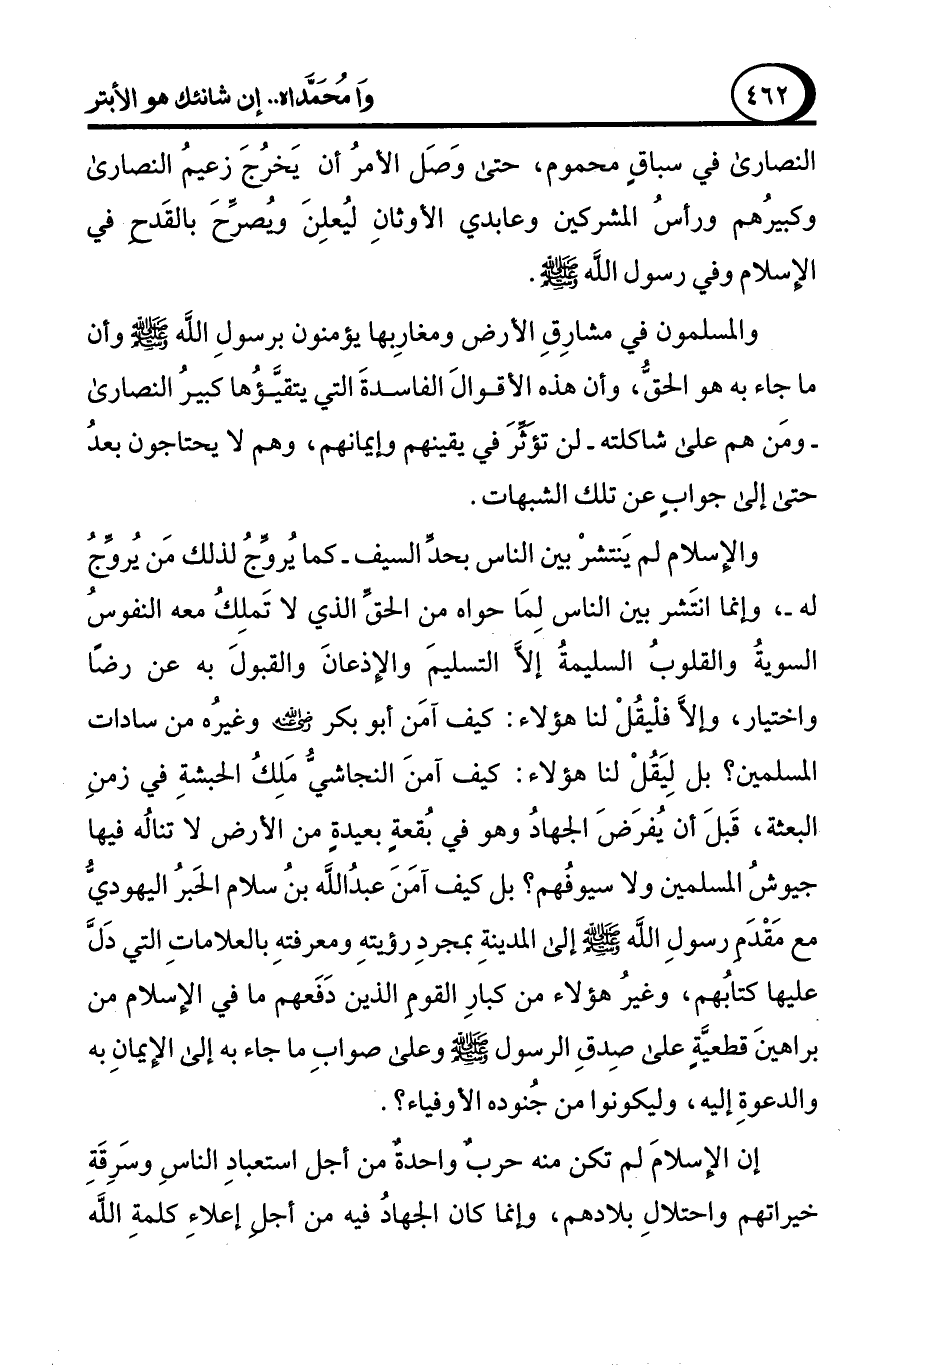 ٤٦٢ وَا مُحَمَّدَاه.. إن شانئك هو الأبتر
النصارىٰ في سباقٍ محموم، حتىٰ وَصَل الأمرُ أن يَخرُجَ زعيمُ النصارىٰ
وكبيرُهم ورأسُ المشركين وعابدي الأوثانِ ليُعلِنَ ويُصرِّحَ بالقَدحِ في
الإسلام وفي رسول اللَّه ﷺ.
والمسلمون في مشارِقِ الأرض ومغاربِها يؤمنون برسولِ اللَّه ﷺ وأن
ما جاء به هو الحقُّ، وأن هذه الأقوالَ الفاسدةَ التي يتقيَّؤُها كبيرُ النصارىٰ
ـ ومَن هم علىٰ شاكلته ـ لن تؤثِّرَ في يقينهم وإيمانهم، وهم لا يحتاجون بعدُ
حتىٰ إلىٰ جوابٍ عن تلك الشبهات.
والإسلام لم يَنتشرْ بين الناس بحدِّ السيف ـ كما يُروِّجُ لذلك مَن يُروِّجُ
له ـ، وإنما انتَشر بين الناس لِمَا حواه من الحقِّ الذي لا تَملِكُ معه النفوسُ
السويةُ والقلوبُ السليمةُ إلاَّ التسليمَ والإذعانَ والقبولَ به عن رضًا
واختيار، وإلاَّ فلْيقُلْ لنا هؤلاء: كيف آمَن أبو بكر رضي الله عنه وغيرُه من سادات
المسلمين؟ بل لِيَقُلْ لنا هؤلاء: كيف آمنَ النجاشيُّ مَلِكُ الحبشةِ في زمنِ
البعثة، قَبلَ أن يُفرَضَ الجهادُ وهو في بُقعةٍ بعيدةٍ من الأرض لا تنالُه فيها
جيوشُ المسلمين ولا سيوفُهم؟ بل كيف آمَنَ عبدُاللَّه بنُ سلام الحَبرُ اليهوديُّ
مع مَقْدَمِ رسولِ اللَّه ﷺ إلىٰ المدينةِ بمجردِ رؤيتِه ومعرفتِه بالعلاماتِ التي دَلَّ
عليها كتابُهم، وغيرُ هؤلاء من كبارِ القومِ الذين دَفَعهم ما في الإسلام من
براهينَ قطعيَّةٍ علىٰ صِدقِ الرسول ﷺ وعلىٰ صوابِ ما جاء به إلىٰ الإيمانِ به
والدعوةِ إليه، وليكونوا من جُنوده الأوفياء؟.
إن الإسلامَ لم تكن منه حربٌ واحدةٌ من أجل استعبادِ الناسِ وسَرِقَةِ
خيراتهم واحتلالِ بلادهم، وإنما كان الجهادُ فيه من أجلِ إعلاءِ كلمةِ اللَّه